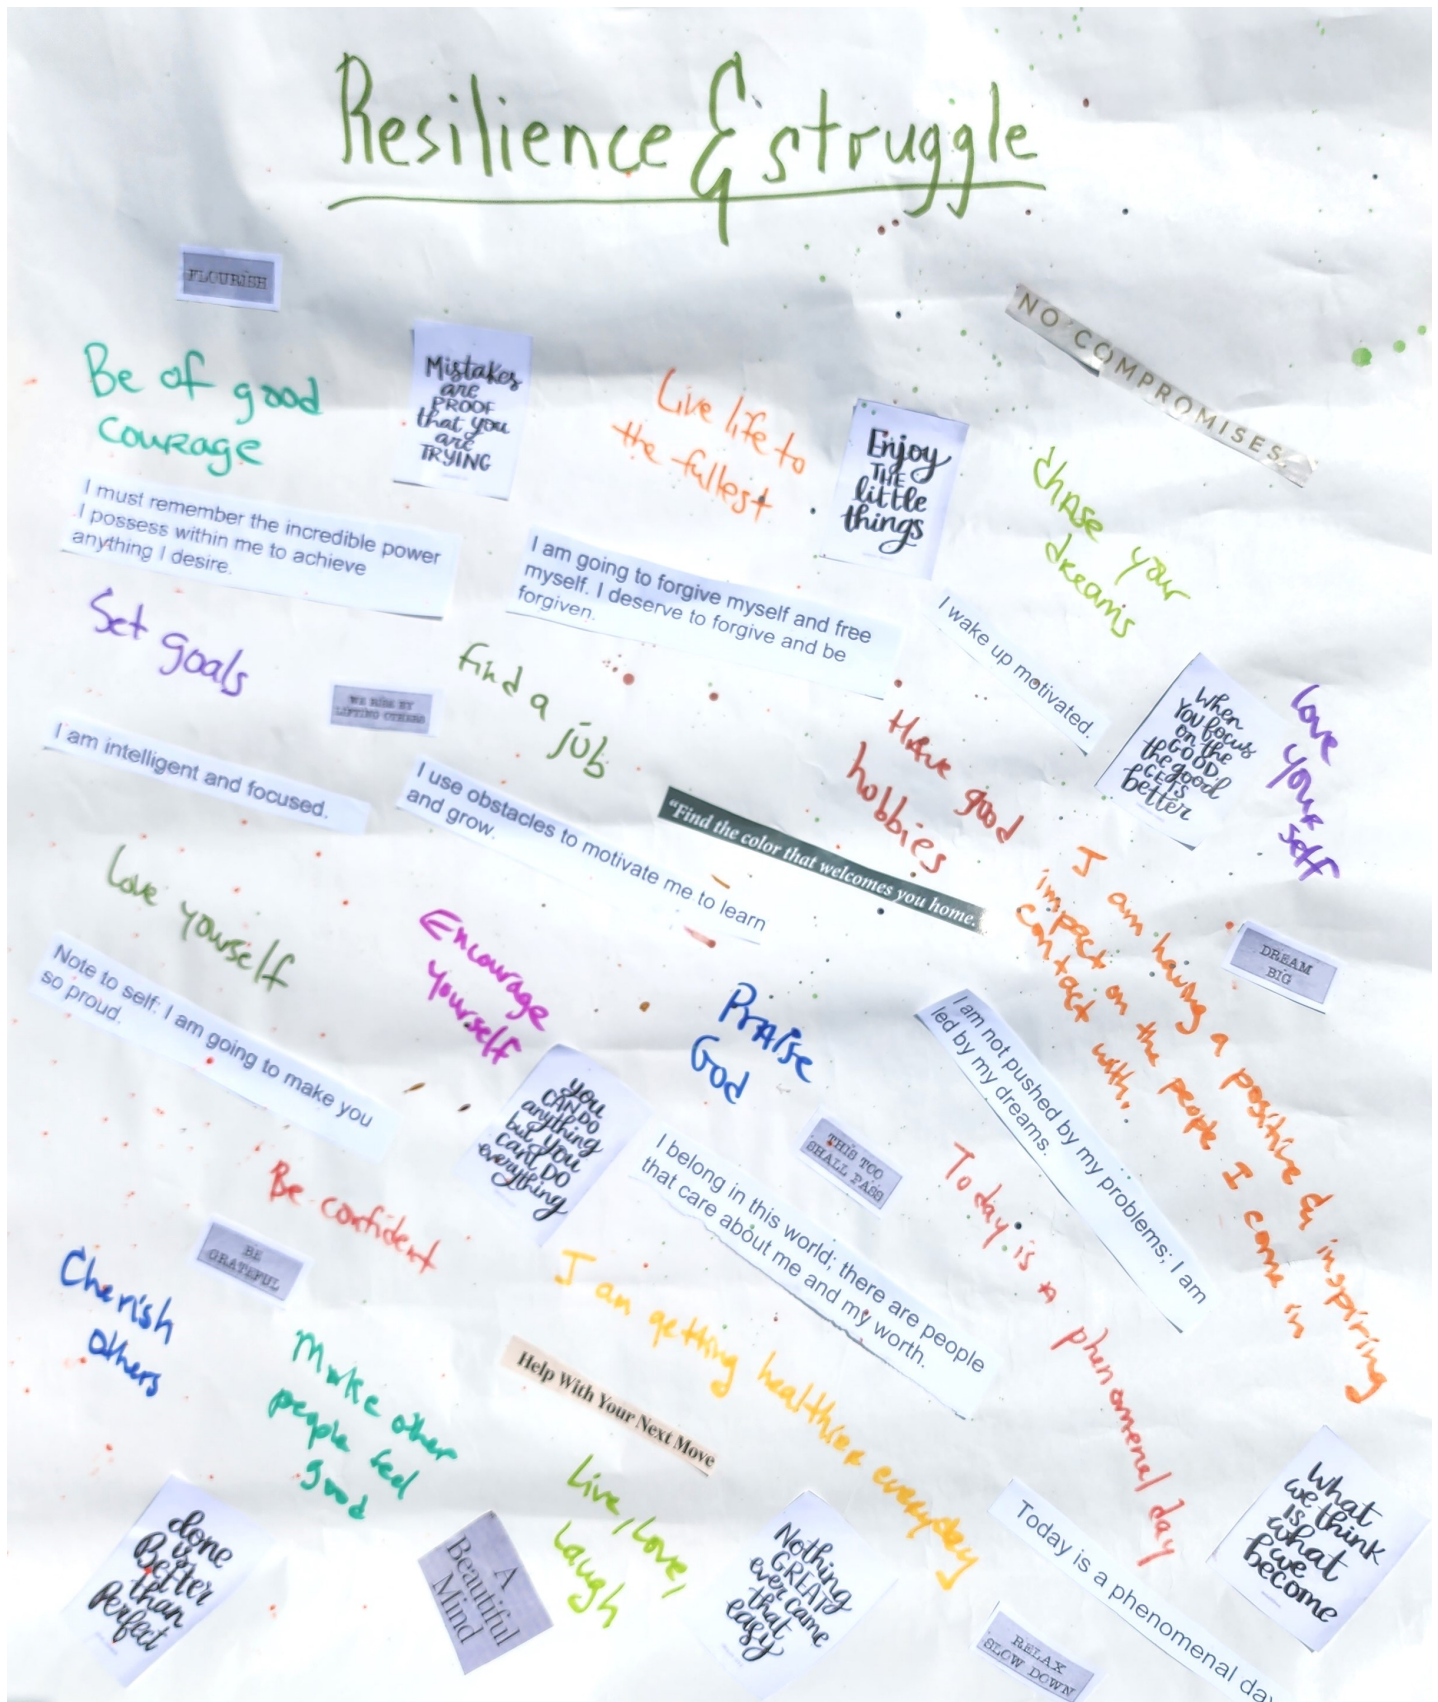 Resilience & struggle
FLOURISH
NO COMPROMISES.
Be of good
courage
Mistakes
are
PROOF
that you
are
TRYING
Live life to
the fullest
Enjoy
THE
little
things
chase your
dreams
I must remember the incredible power
I possess within me to achieve
anything I desire.
I am going to forgive myself and free
myself. I deserve to forgive and be
forgiven.
I wake up motivated.
Set goals
WE RISE BY
LIFTING OTHERS
find a
job
Have good
hobbies
When
You focus
on the
GOOD,
the good
GETS
better
Love
your
self
I am intelligent and focused.
I use obstacles to motivate me to learn
and grow.
"Find the color that welcomes you home.
I am having a positive & inspiring
impact on the people I come in
contact with.
DREAM
BIG
Love yourself
Encourage
yourself
Note to self: I am going to make you
so proud.
Praise
God
I am not pushed by my problems; I am
led by my dreams.
you
CAN DO
anything
but you
can't DO
everything
THIS TOO
SHALL PASS
I belong in this world; there are people
that care about me and my worth.
Today is a phenomenal day
Be confident
BE
GRATEFUL
Cherish
others
I am getting healthier everyday
Make other
people feel
good
Help With Your Next Move
Live, Love,
Laugh
done
is
Better
than
Perfect
A
Beautiful
Mind
Nothing
GREAT
ever came
that
easy
Today is a phenomenal day
What
we think
IS
what
we
become
RELAX
SLOW DOWN